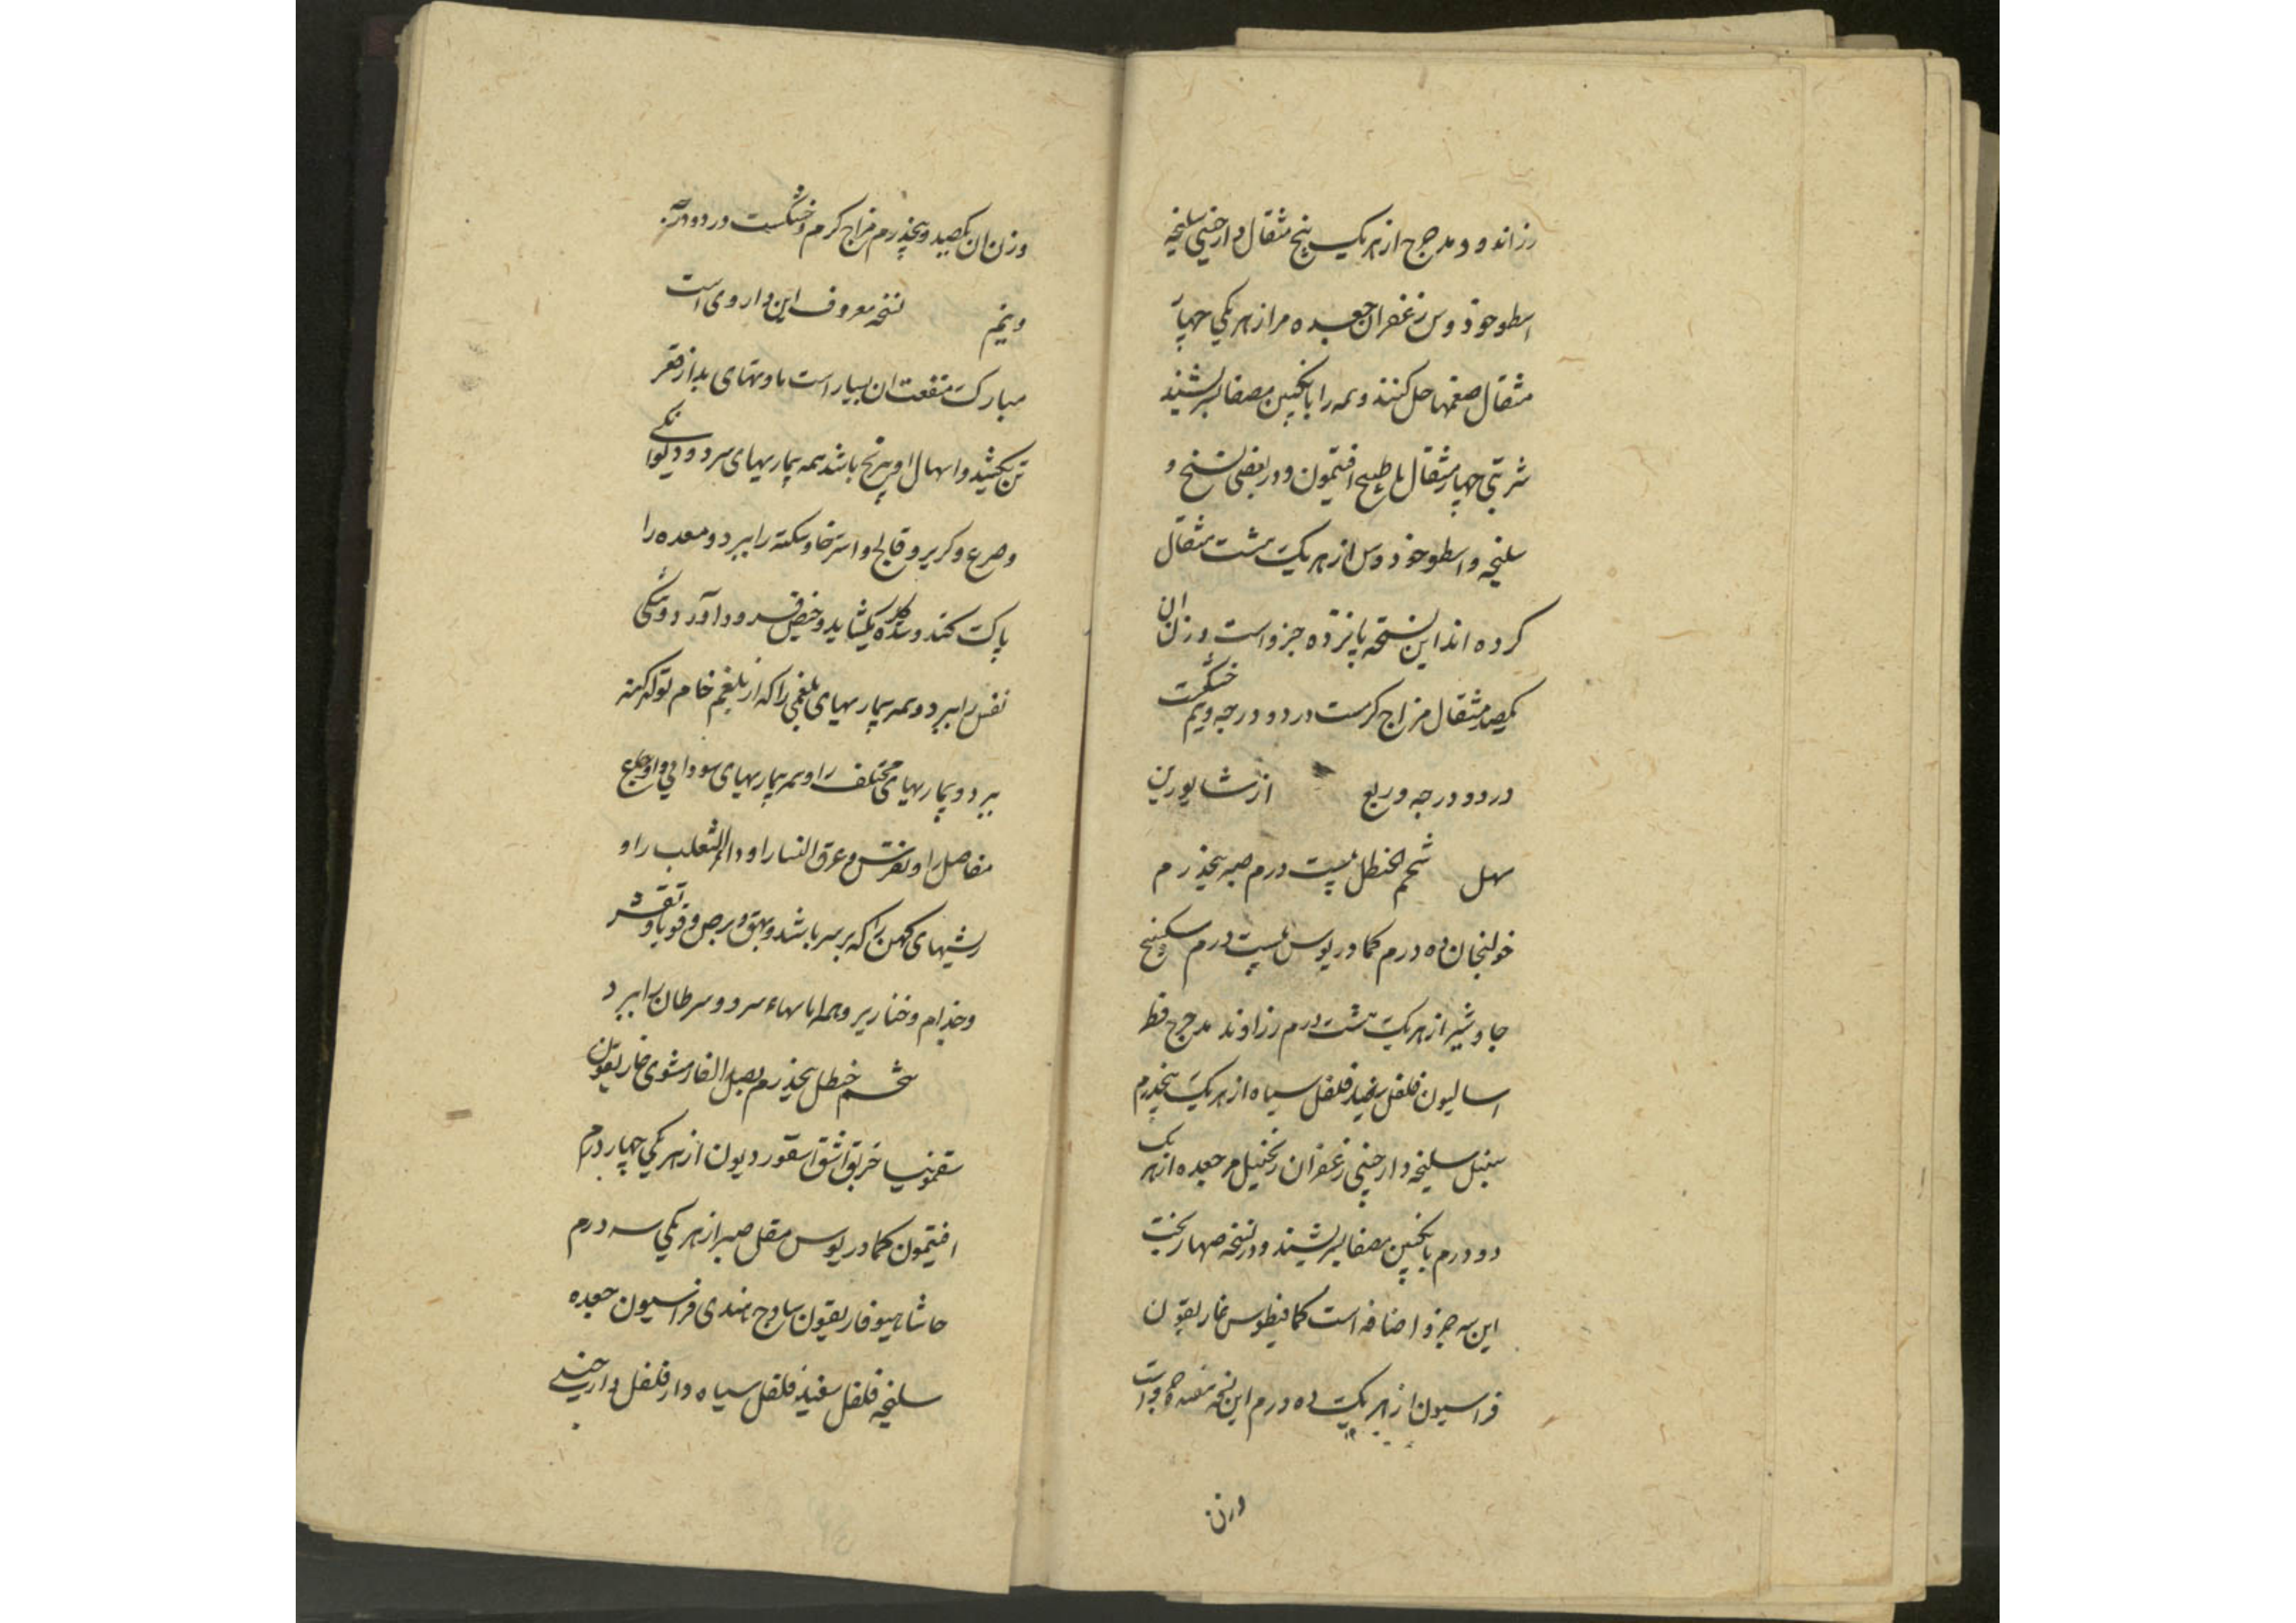 رزاندود مدحرج از هریک پنج مثقال دارچینی سلیخه
اسطوخودوس زعفران جعده مر از هریکی چهار
مثقال صمغها حل کنند و همه را بانگبین مصفا بسرشند
شربتی چهار مثقال با طبیخ افتیمون و در بعضی نسخ و
سلیخه و اسطوخودوس از هریک هشت مثقال
کرده اند این نسخه پانزده جزو است وزن ان
یکصد مثقال مزاج کرمست در دو درجه و نیم خشکست
در دو درجه و ربع از شابورین
سهل شحم الحنظل بیست درم صبر پنجدرم
خولنجان ده درم کمادریوس بیست درم سکبینج
جاوشیر از هریک هشت درم رزاوند مدحرج فط
اسالیون فلفل سفید فلفل سیاه از هریک پنجدرم
سنبل سلیخه دارچینی زعفران زنجبیل مر جعده از هر یک
دو درم بانگبین مصفا بسرشند و در نسخه صهاربخت
این سه جزو اضافه است کمافیطوس غاریقون
فراسیون از هر یک ده درم این نسخه هفده جزو است
وزن
وزن ان یکصد و پنجدرم مزاج کرم و خشکست در دو درجه
و نیم نسخه معروف این داروی است
مبارک منفعت ان بسیار است مادتهای بد از قعر
تن بکشد و اسهال او بی رنج باشد همه بیماریهای سرد و دیوانکی
و صرع و کریر و فالج و استرخا و سکته را ببرد و معده را
پاک کند و سده جکر بکشاید و حیض فرود آورد و تنکی
نفس را ببرد و همه بیماریهای بلغمی را که از بلغم خام تولد کند
ببرد و بیماریهای مختلف را و همه بیماریهای سودایی و اوجاع
مفاصل را و نقرس و عرق النسا را و داء الثعلب را و
ریشهای کهن را که بر سر باشد و بهق و برص و قوبا و تقشر
و جذام و خنازیر و همه اماسهاء سرد و سرطان را ببرد
شحم حنظل پنجدرم بصل الفار مشوی غاریقون
سقمونیا خربق اشق اسقوردیون از هریکی چهار درم
افتیمون کمادریوس مقل صبر از هریکی سه درم
حاشا هیوفاریقون ساذج هندی فراسیون جعده
سلیخه فلفل سفید فلفل سیاه دارفلفل دارچینی